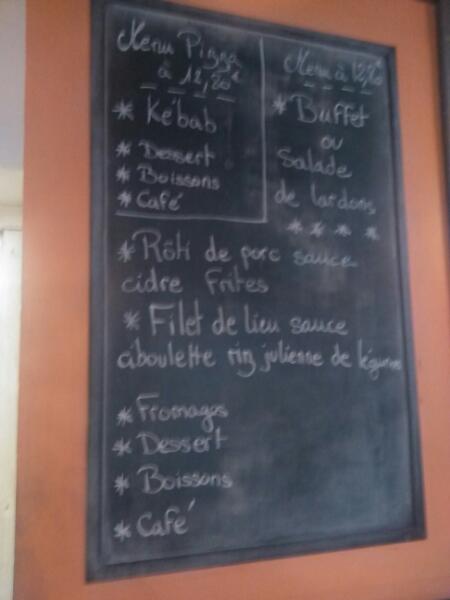 Menu Pizza
à 12,20
* Kébab
* Dessert
* Boissons
* Café
Menu à 12,20
* Buffet
ou
Salade
de lardons
* * * *
* Rôti de porc sauce
cidre frites
* Filet de lieu sauce
ciboulette riz julienne de légumes
* Fromages
* Dessert
* Boissons
* Café